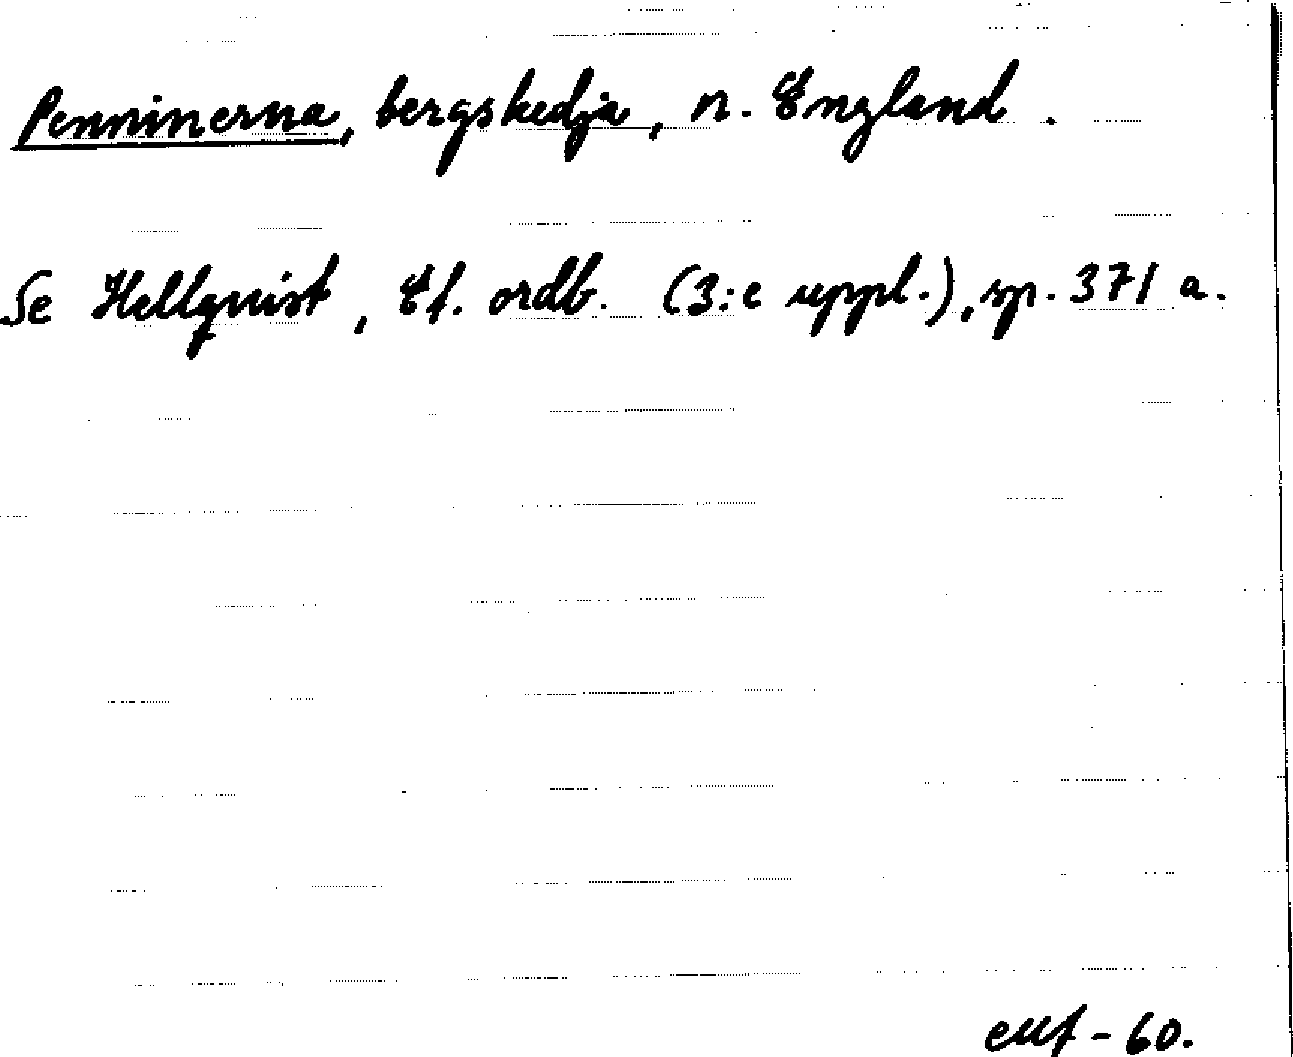 Penninerna, bergskedja, n. England.
Se Hellquist, Et. ordb. (3:e uppl.), sp. 371 a.
-60.